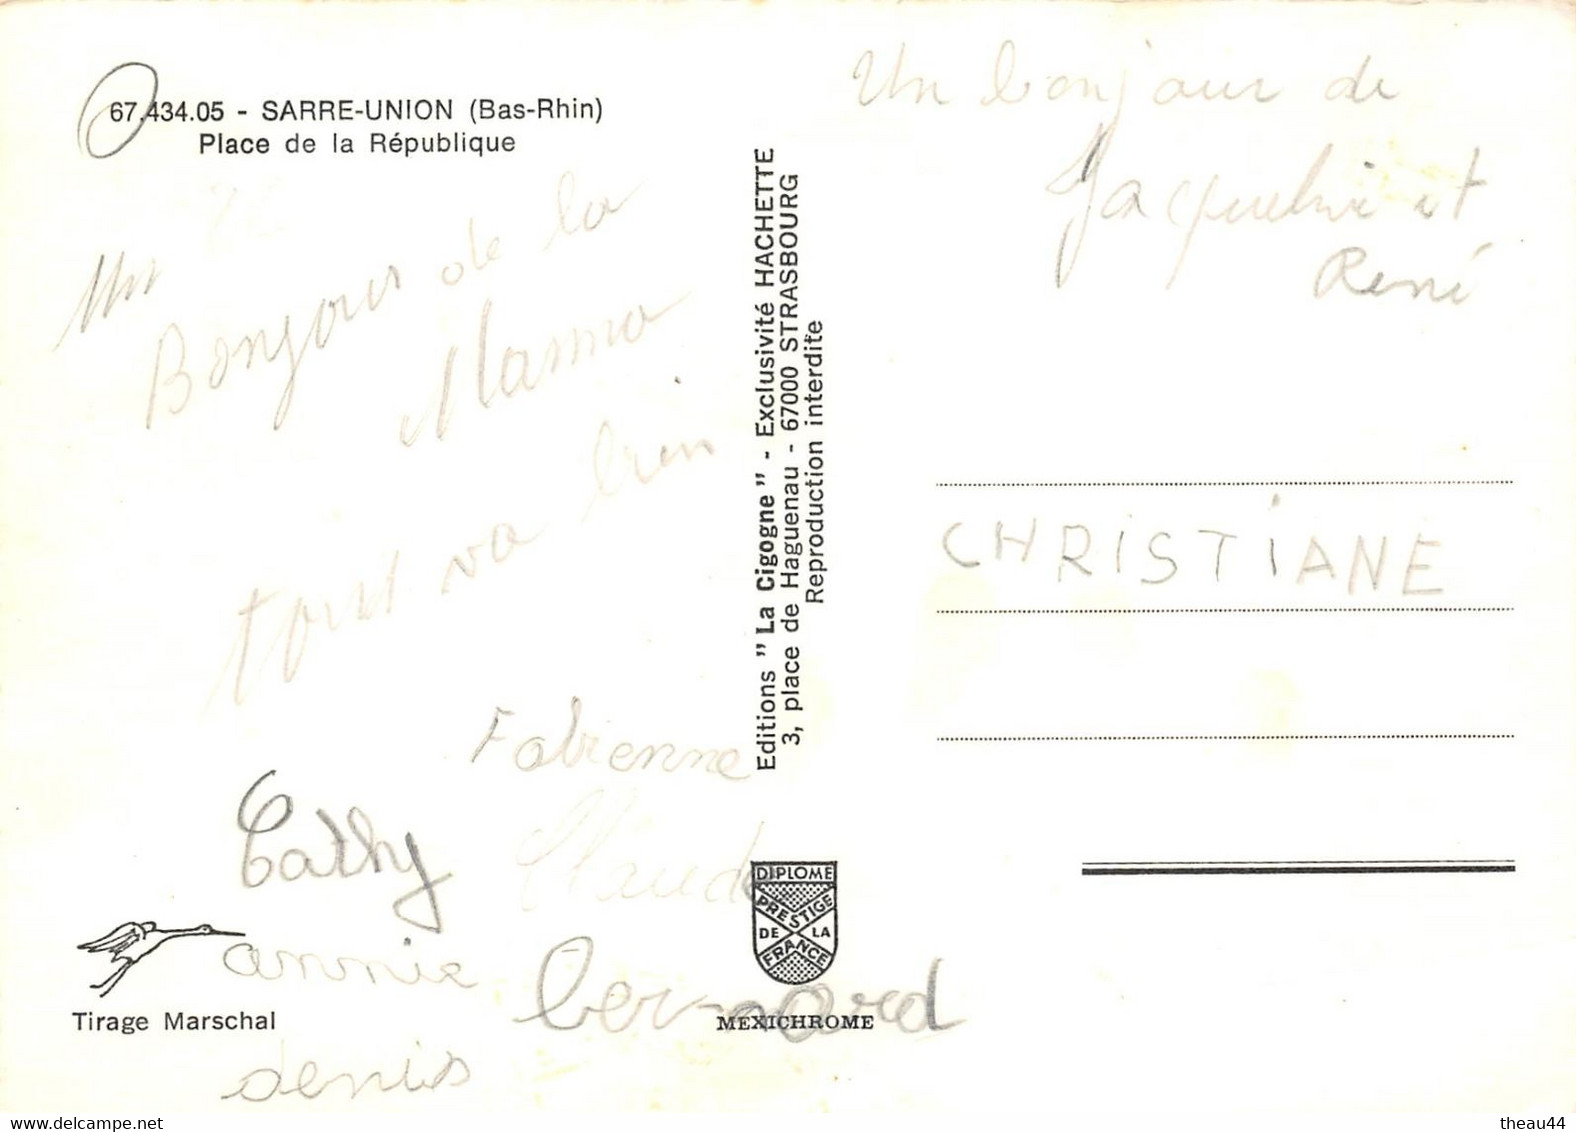 67.434.05 - SARRE-UNION (Bas-Rhin)
Place de la République
Un
Bonjour de la
Mama
tout va bien
Fabienne
Cathy
Claude
annie
bernard
denis
Tirage Marschal
Editions " La Cigogne " - Exclusivité HACHETTE
3, place de Haguenau - 67000 STRASBOURG
Reproduction interdite
DIPLOME
PRESTIGE
DE LA
FRANCE
MEXICHROME
Un bonjour de
Jacqueline et
René
CHRISTIANE
theau44